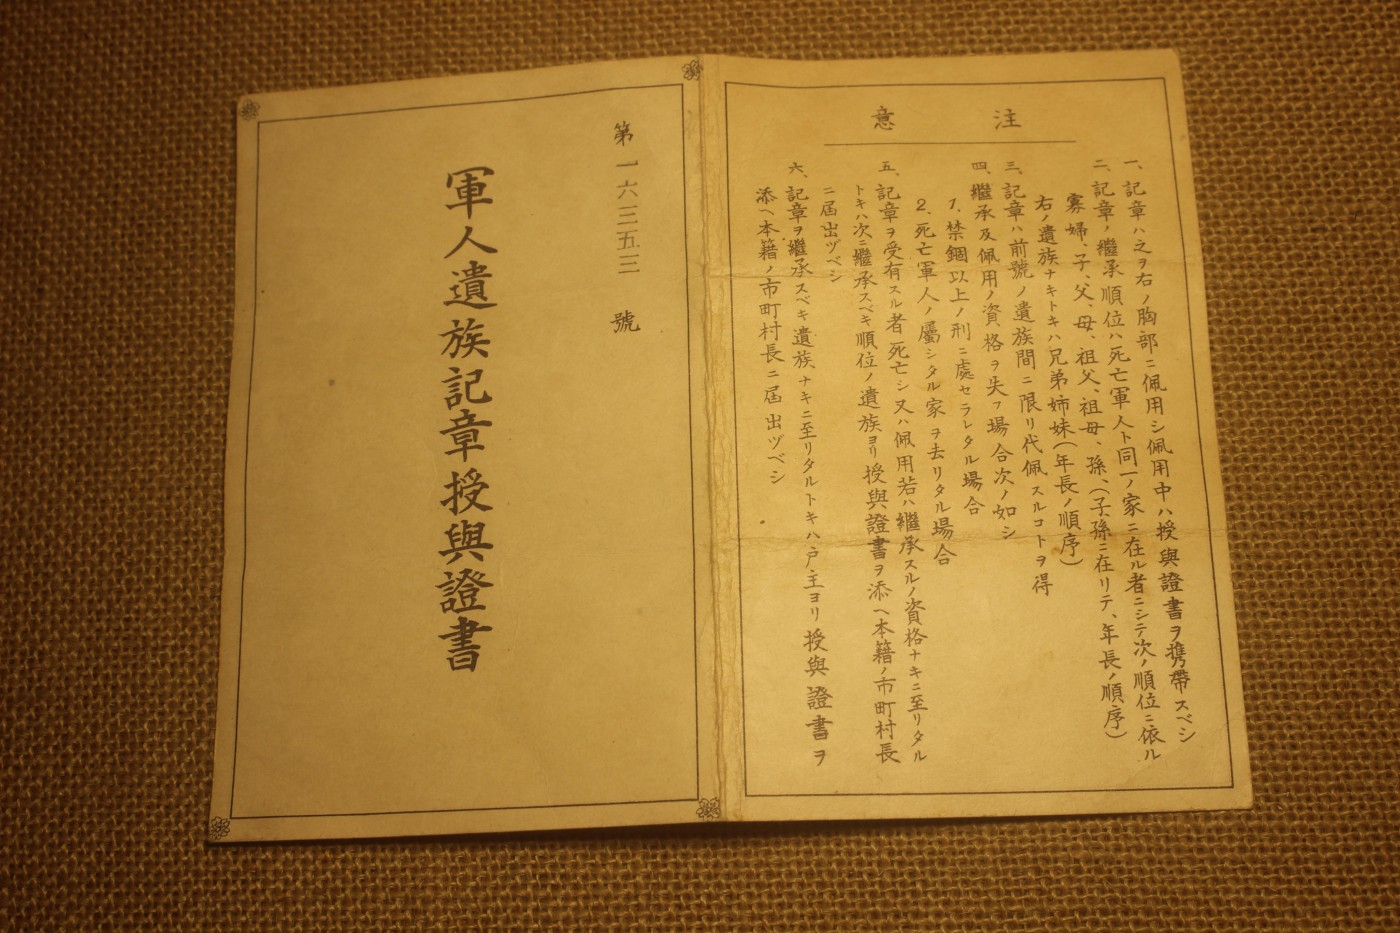 注意
一、記章ハ之ヲ右ノ胸部ニ佩用シ佩用中ハ授與證書ヲ携帶スベシ
二、記章ノ繼承順位ハ死亡軍人ト同一ノ家ニ在ル者ニシテ次ノ順位ニ依ル
寡婦、子、父、母、祖父、祖母、孫、(子孫ニ在リテハ年長ノ順序)
右ノ遺族ナキトキハ兄弟姉妹(年長ノ順序)
三、記章ハ前號ノ遺族間ニ限リ代佩スルコトヲ得
四、繼承及佩用ノ資格ヲ失フ場合次ノ如シ
1.禁錮以上ノ刑ニ處セラレタル場合
2.死亡軍人ノ屬シタル家ヲ去リタル場合
五、記章ヲ受有スル者死亡シ又ハ佩用若ハ繼承スルノ資格ナキニ至リタル
トキハ次ニ繼承スベキ順位ノ遺族ヨリ授與證書ヲ添ヘ本籍ノ市町村長
ニ屆出ヅベシ
六、記章ヲ繼承スベキ遺族ナキニ至リタルトキハ戸主ヨリ授與證書ヲ
添ヘ本籍ノ市町村長ニ屆出ヅベシ
第一六三五三號
軍人遺族記章授與證書